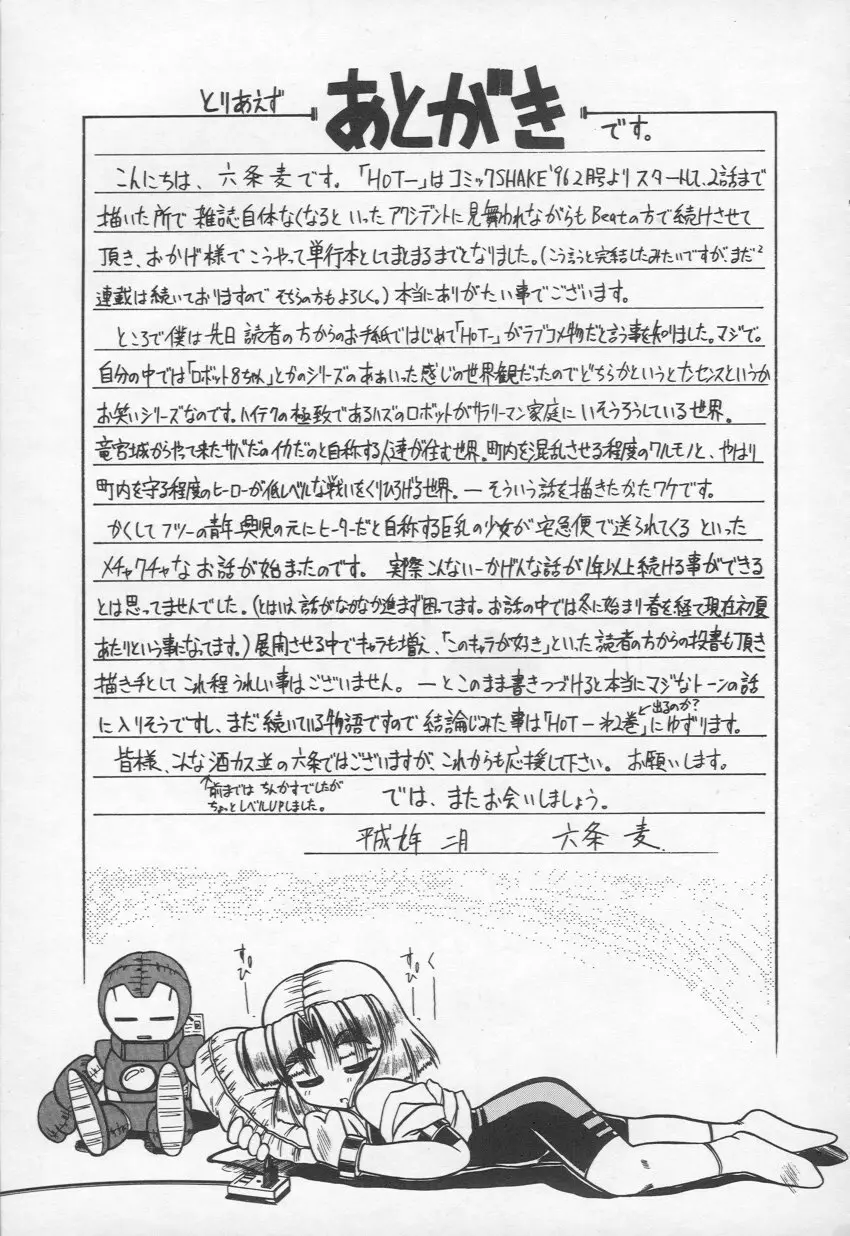 とりあえず
あとがき
です。
こんにちは、六条麦です。「HOT-」はコミックSHAKE'96 2月号よりスタートして、2話まで
描いた所で雑誌自体なくなるといったアクシデントに見舞われながらもBeatの方で続けさせて
頂き、おかげ様でこうやって単行本としてまとまるまでとなりました。(こう言うと完結したみたいですがまだ2
連載は続いておりますのでそちらの方もよろしく。)本当にありがたい事でございます。
ところで僕は先日読者の方からのお手紙ではじめて「HOT-」がラブコメ物だと言う事を知りました。マジで。
自分の中では「ロボット8ちゃん」とかのシリーズのああいった感じの世界観だったのでどちらかというとナンセンスというか
お笑いシリーズなのです。ハイテクの極致であるハズのロボットがサラリーマン家庭にいそうろうしている世界。
竜宮城からやって来たサバだのイカだのと自称する人達が住む世界。町内を混乱させる程度のワルモノと、やはり
町内を守る程度のヒーローが低レベルな戦いをくりひろげる世界。—そういう話を描きたかったワケです。
かくしてフツーの青年興児の元にヒーターだと自称する巨乳の少女が宅急便で送られてくるといった
メチャクチャなお話が始まったのです。実際こんないーかげんな話が1年以上続ける事ができる
とは思ってませんでした。(とはいえ話がなかなか進まず困ってます。お話の中では冬に始まり春を経て現在初夏
あたりという事になってます。)展開させる中でキャラも増え、「このキャラが好き」といった読者の方からの投書も頂き
描き手としてこれ程うれしい事はございません。—とこのまま書きつづけると本当にマジなトーンの話
に入りそうですし、まだ続いている物語ですので結論じみた事は「HOT-第2巻」にゆずります。
出るのか?
皆様、こんな酒カス並の六条ではございますが、これからも応援して下さい。お願いします。
↑前まではちんかすでしたが
ちょっとレベルUPしました。
では、またお会いしましょう。
平成九年 二月 六条 麦
すぴー
すぴー
く